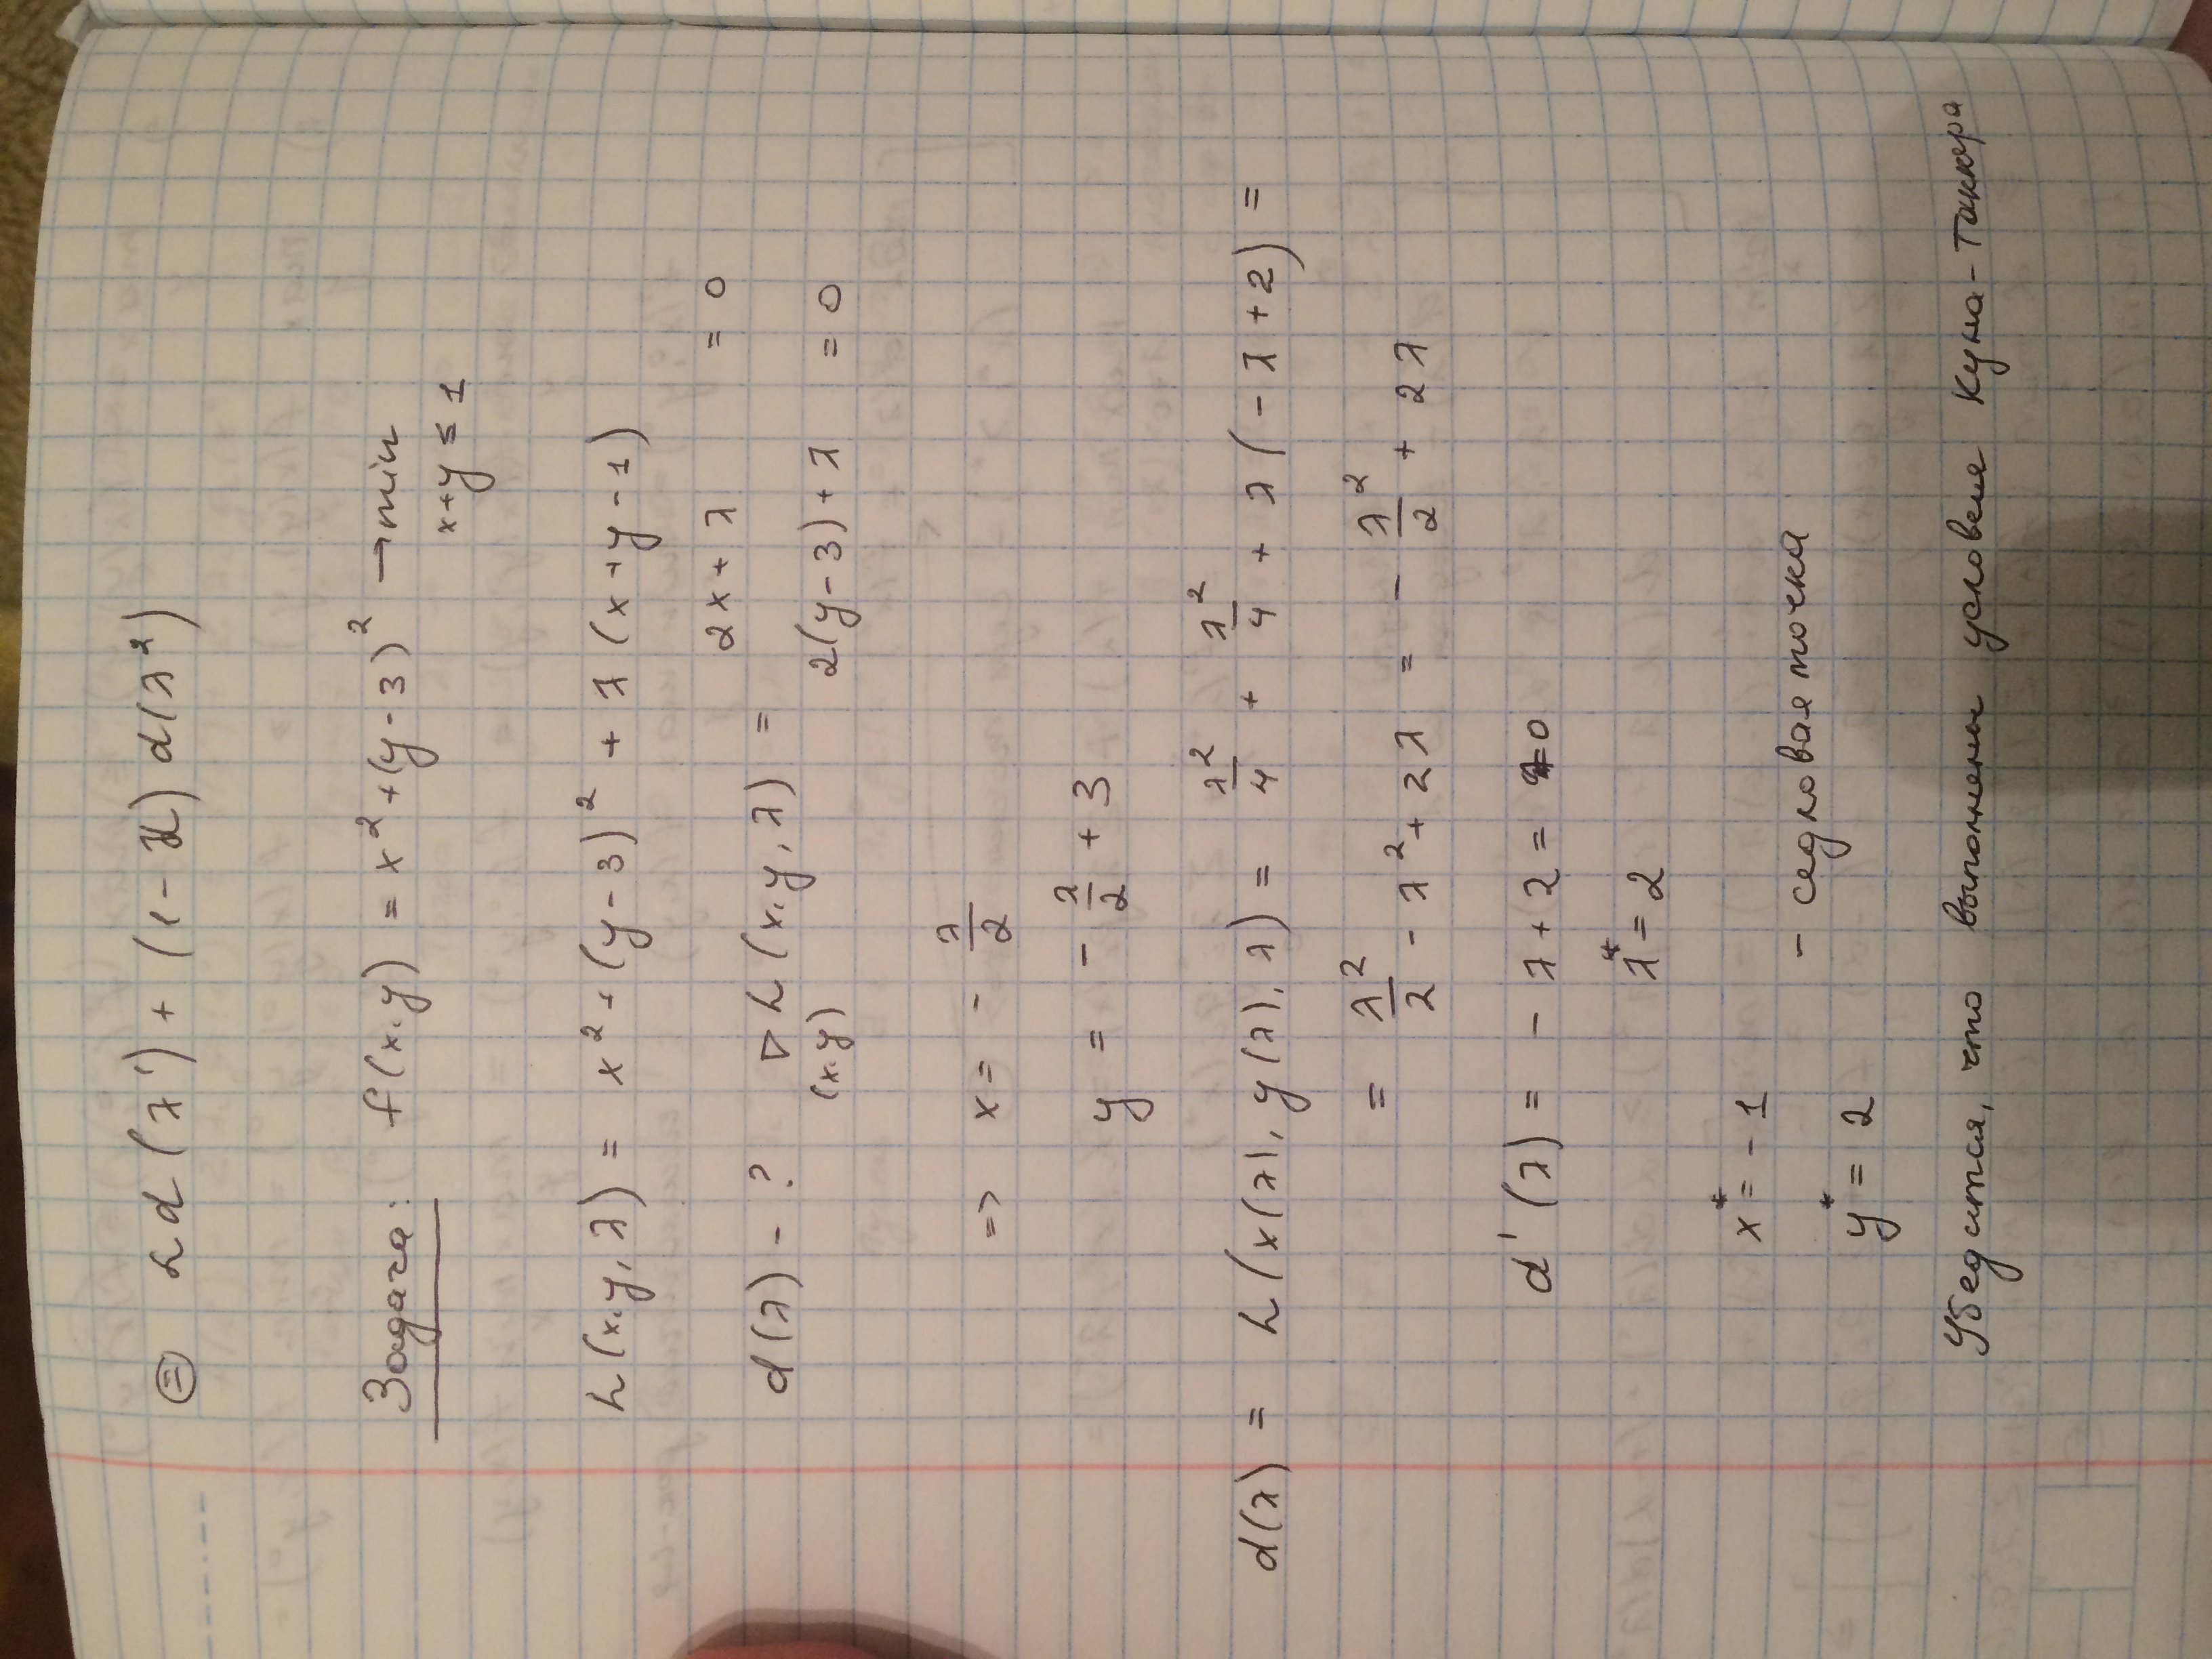 ⊜ αd(λ¹) + (1-α) d(λ²)
Задача: f(x,y) = x² + (y-3)² → min
x+y ≤ 1
L(x,y,λ) = x² + (y-3)² + λ(x+y-1)
d(λ) - ? ∇ L(x,y,λ) = 2x + λ = 0
(x,y) 2(y-3) + λ = 0
=> x = - λ/2
y = - λ/2 + 3
d(λ) = L(x(λ), y(λ), λ) = λ²/4 + λ²/4 + λ(-λ+2) =
= λ²/2 - λ² + 2λ = - λ²/2 + 2λ
d'(λ) = - λ + 2 = 0
λ* = 2
x* = - 1
- седловая точка
y* = 2
Убедится, что выполнены условия Куна-Такера